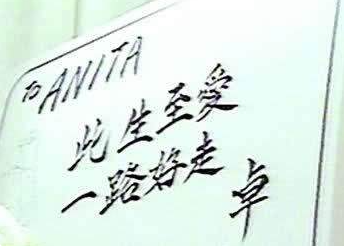 TO ANITA
此生至愛
一路好走
卓